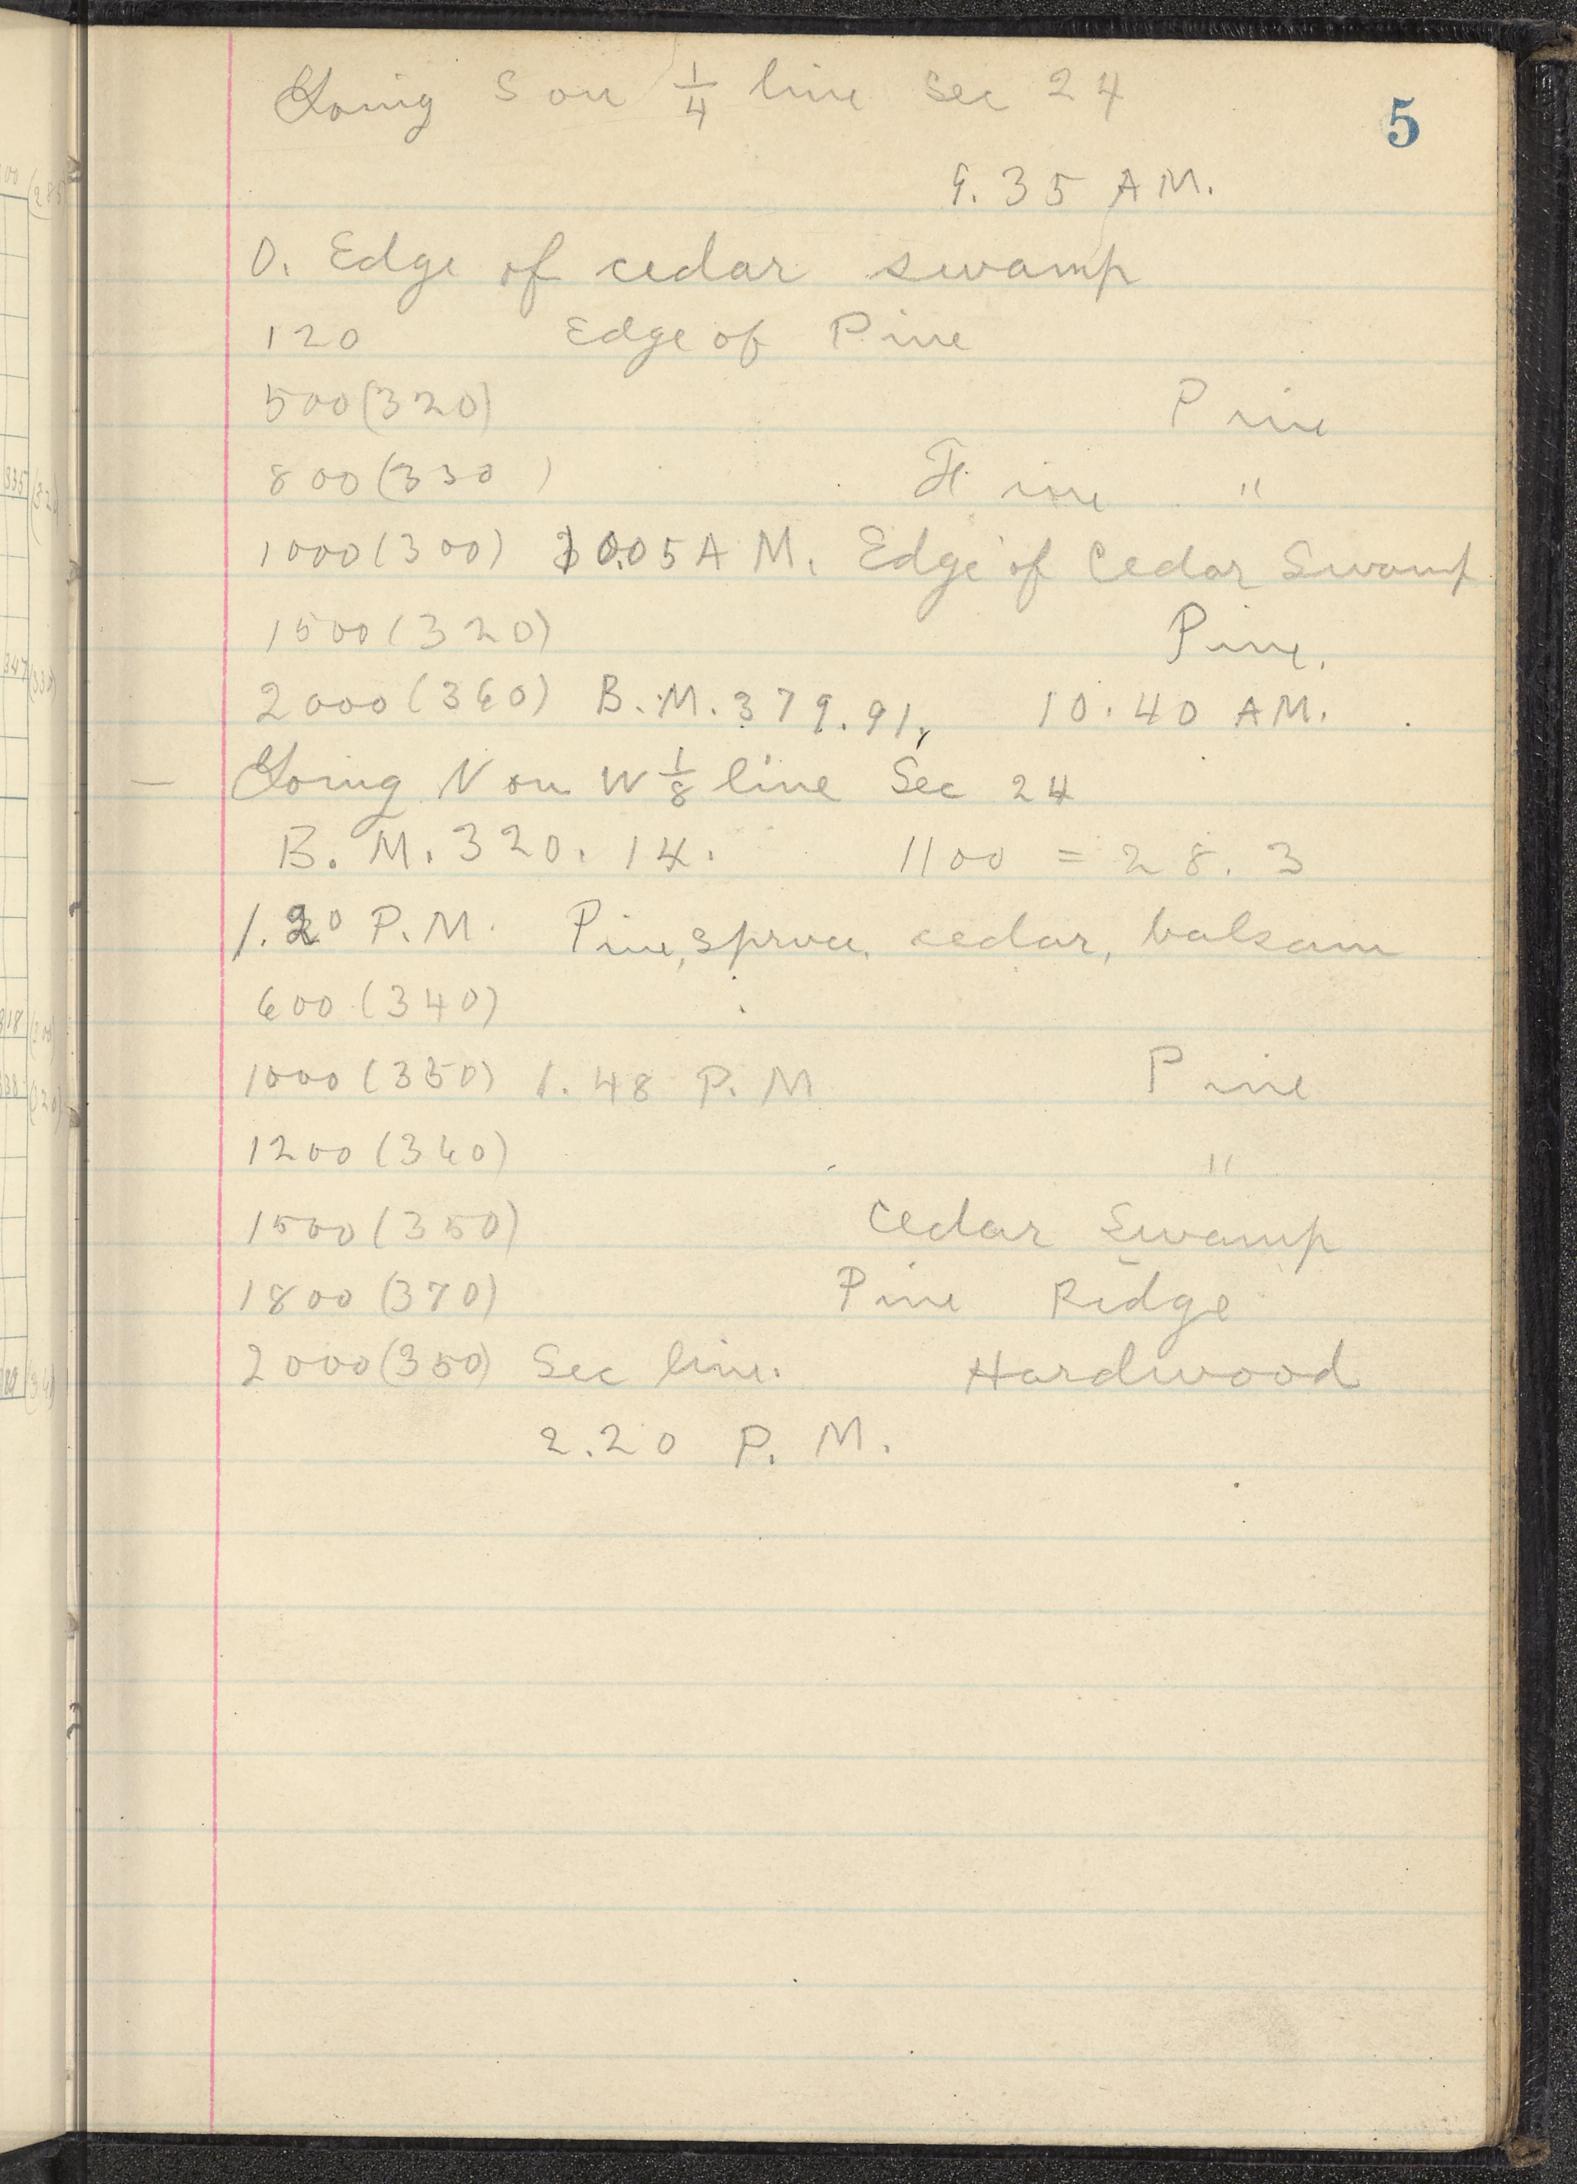 Going S on 1/4 line Sec 24
5
9.35 AM.
0. Edge of cedar swamp
120 Edge of Pine
500(320) Pine
800(330) "
1000(300) 10.05 A M. Edge of Cedar Swamp
1500(320) Pine.
2000(360) B.M. 379.91, 10.40 AM.
— Going N on W 1/8 line Sec 24
B. M. 320.14. 1100 = 28.3
1.20 P.M. Pine, spruce, cedar, balsam
600(340)
1000(350) 1.48 P. M Pine
1200(340) "
1500(350) Cedar Swamp
1800(370) Pine Ridge
2000(350) Sec line. Hardwood
2.20 P. M.